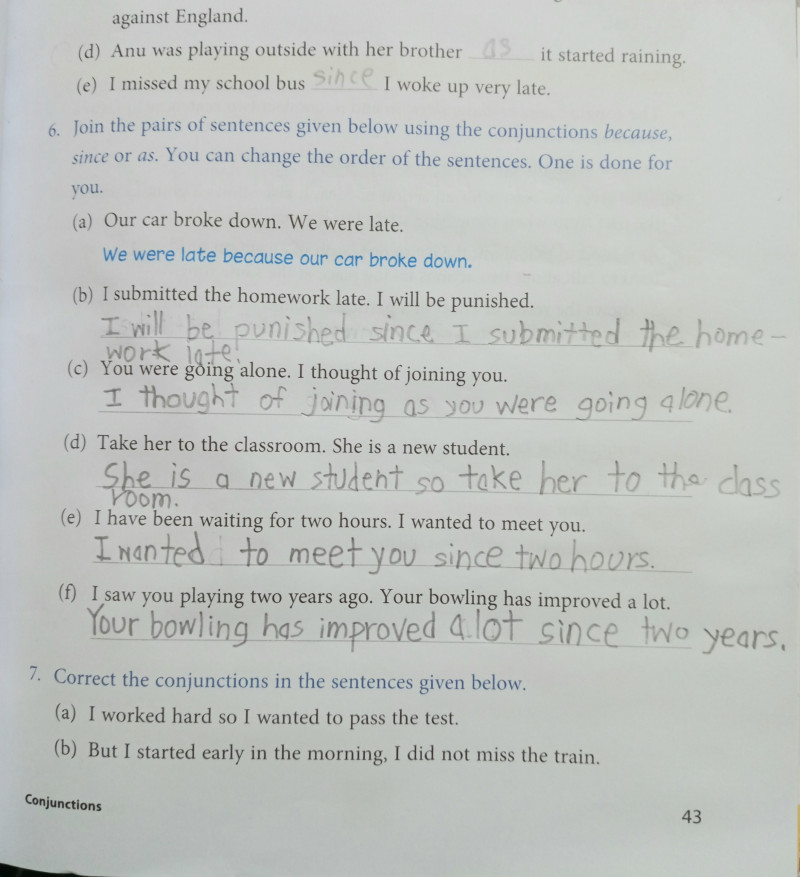 against England.
(d) Anu was playing outside with her brother as it started raining.
(e) I missed my school bus since I woke up very late.
6. Join the pairs of sentences given below using the conjunctions because,
since or as. You can change the order of the sentences. One is done for
you.
(a) Our car broke down. We were late.
We were late because our car broke down.
(b) I submitted the homework late. I will be punished.
I will be punished since I submitted the home-
work late.
(c) You were going alone. I thought of joining you.
I thought of joining as you were going alone.
(d) Take her to the classroom. She is a new student.
She is a new student so take her to the class
room.
(e) I have been waiting for two hours. I wanted to meet you.
I wanted to meet you since two hours.
(f) I saw you playing two years ago. Your bowling has improved a lot.
Your bowling has improved a lot since two years.
7. Correct the conjunctions in the sentences given below.
(a) I worked hard so I wanted to pass the test.
(b) But I started early in the morning, I did not miss the train.
Conjunctions
43